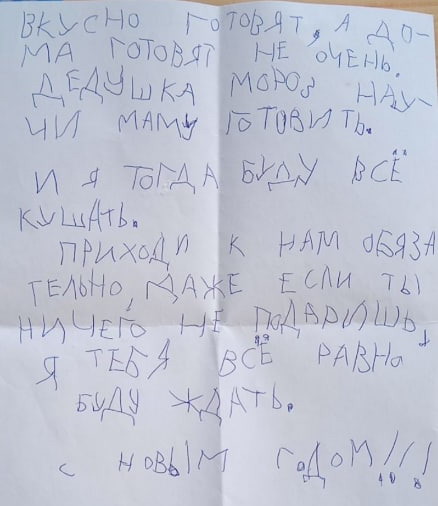 ВКУСНО ГОТОВЯТ, А ДО-
МА ГОТОВЯТ НЕ ОЧЕНЬ.
ДЕДУШКА МОРОЗ НАУ-
ЧИ МАМУ ГОТОВИТЬ.
И Я ТОГДА БУДУ ВСЁ
КУШАТЬ.
ПРИХОДИ К НАМ ОБЯЗА
ТЕЛЬНО, ДАЖЕ ЕСЛИ ТЫ
НИЧЕГО НЕ ПОДАРИШЬ,
Я ТЕБЯ ВСЁ РАВНО
БУДУ ЖДАТЬ.
С НОВЫМ ГОДОМ!!!